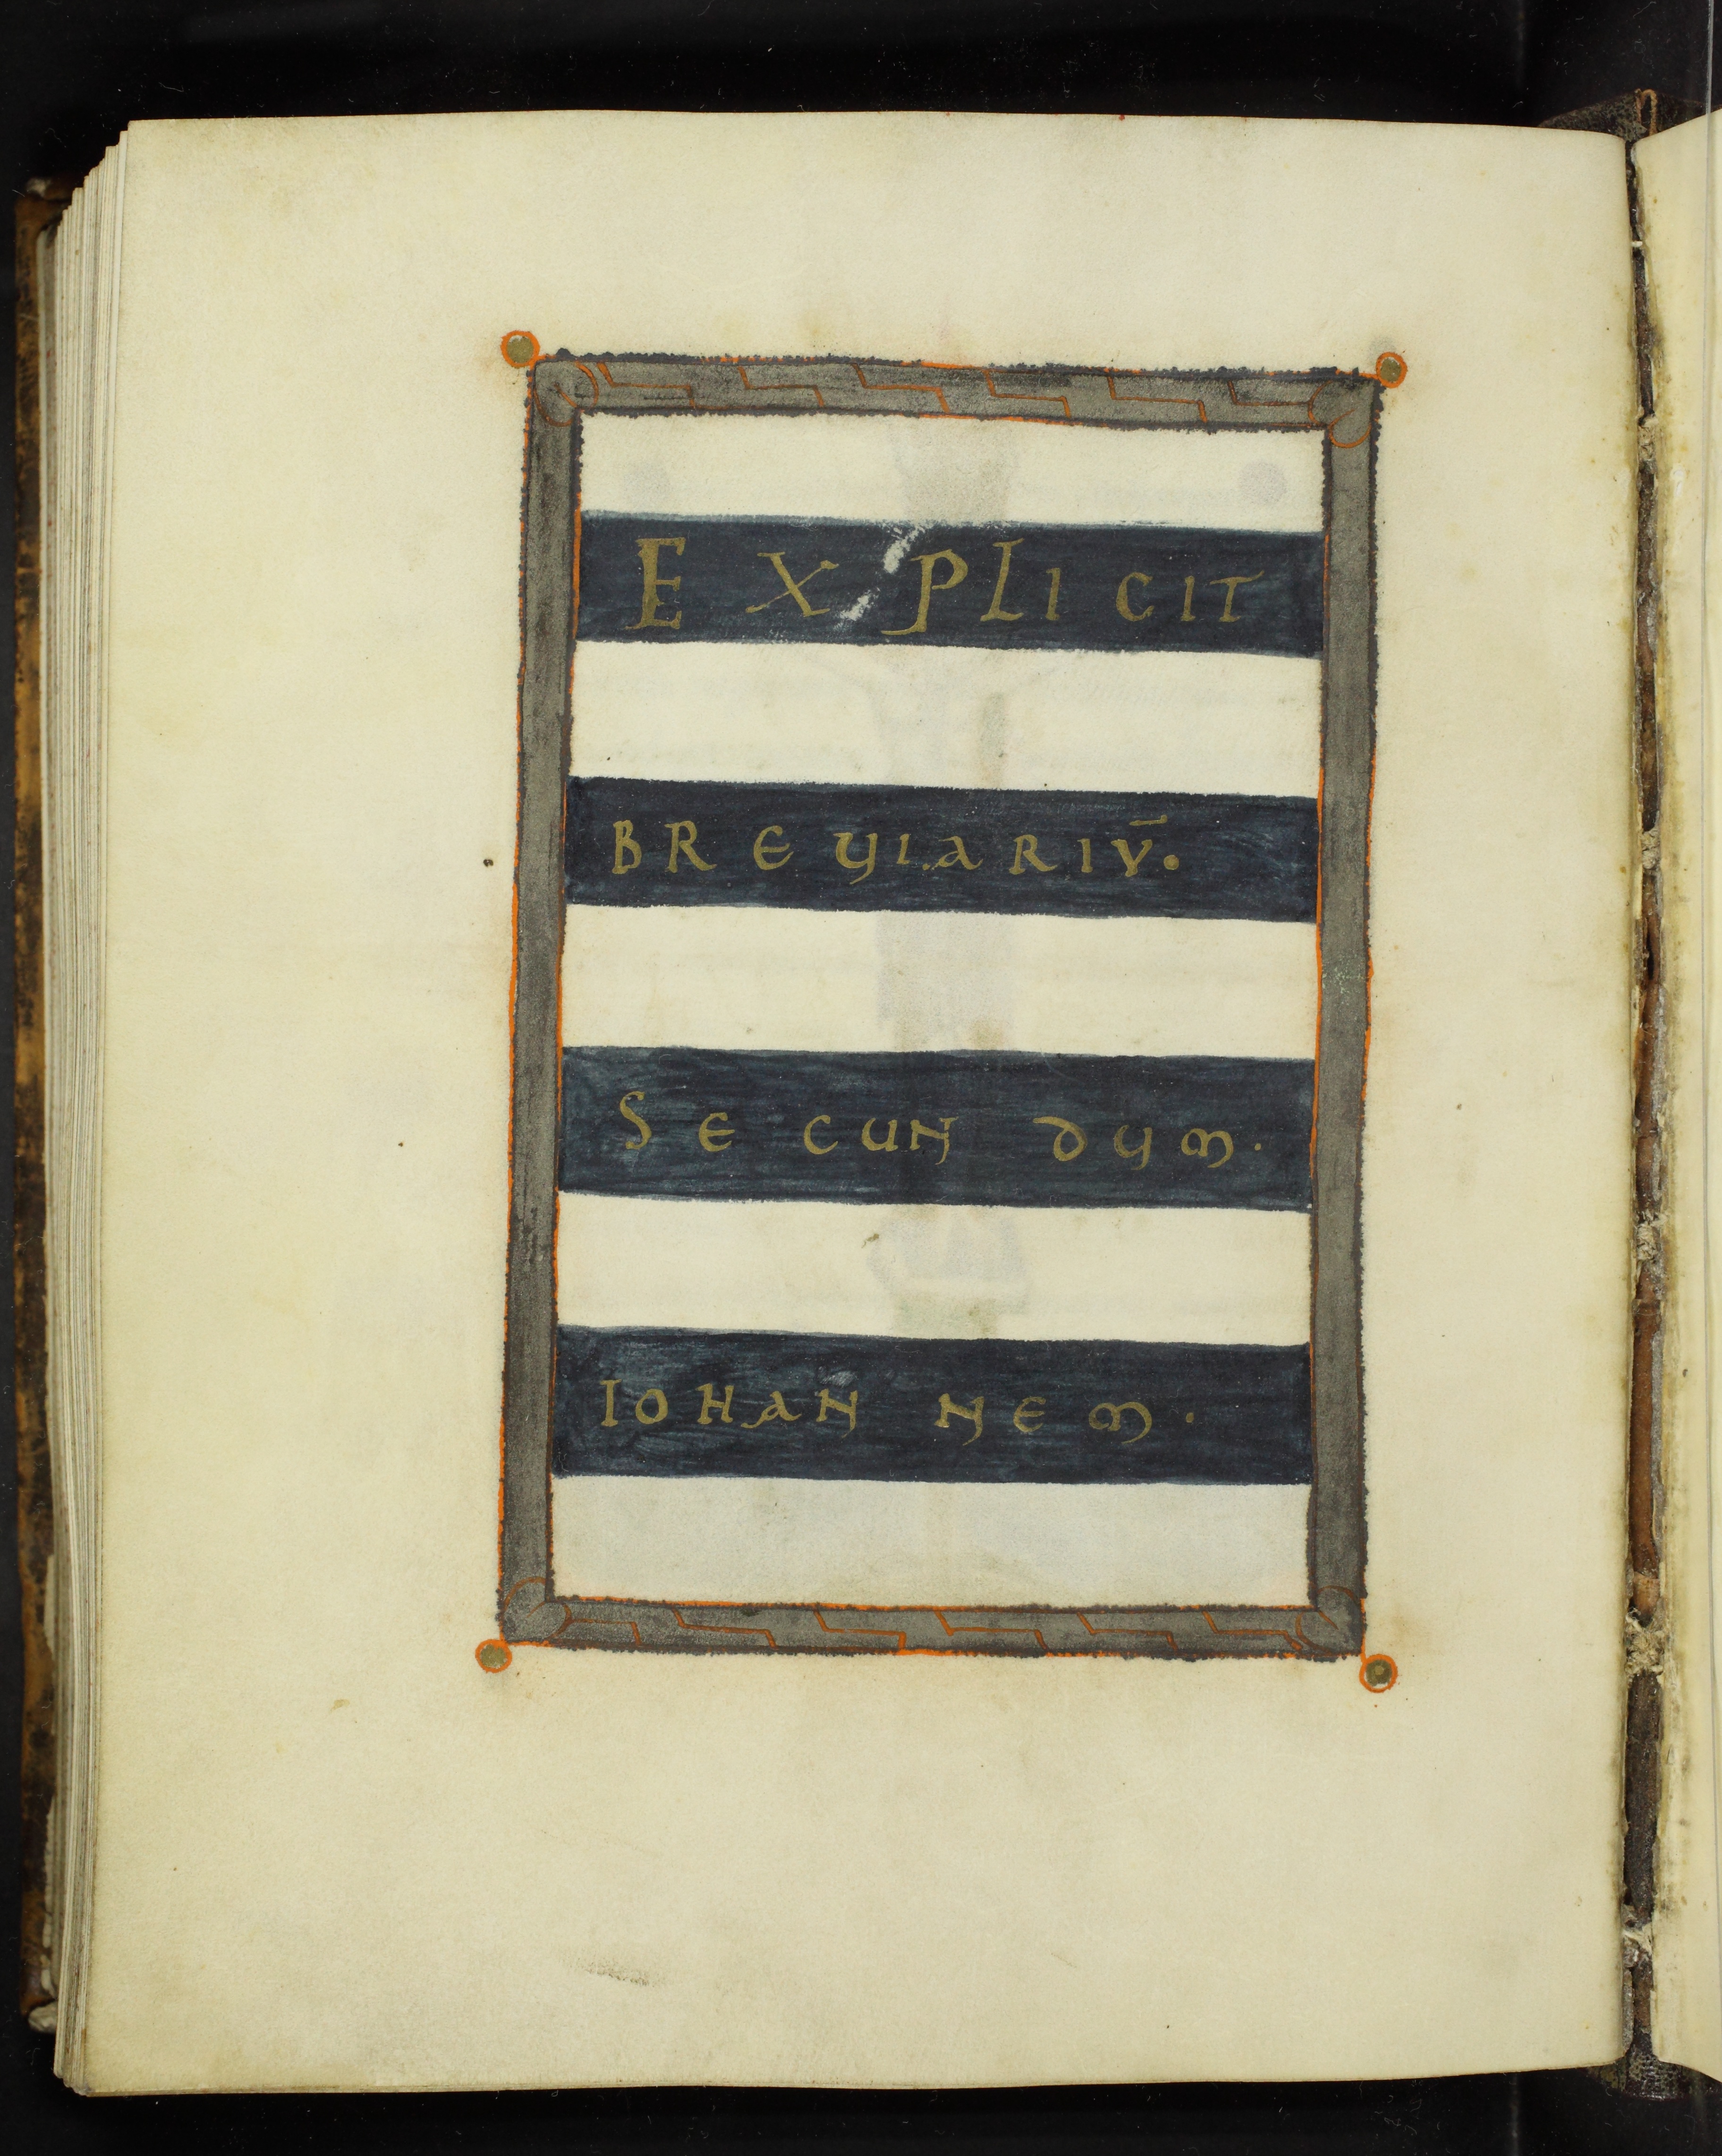 EXPLICIT
BREUIARIŪ.
SECUNDUM.
IOHANNEM.